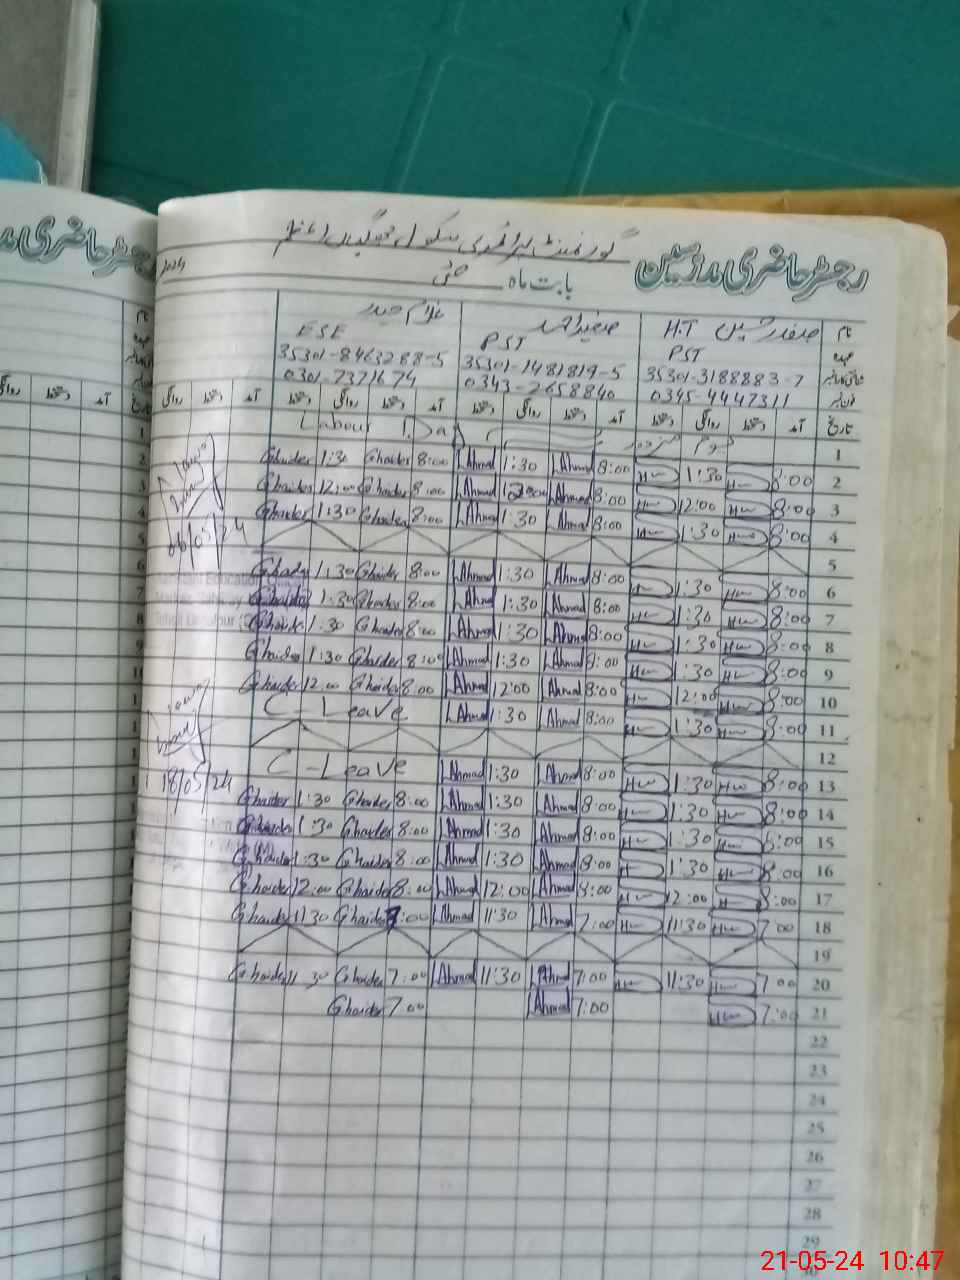 گورنمنٹ پرائمری سکول جوگیاں اعظم
رجسٹر حاضری مدرسین
بابت ماہ مئی
2024
نام صفدر حسین H.T صغیر احمد غلام حیدر
عہدہ PST PST ESE
35301-3188883-7 35301-1481819-5 35301-8463288-5
0345-4447311 0343-2658840 0301-7371674
تاریخ آمد دستخط روانگی دستخط آمد دستخط روانگی دستخط آمد دستخط روانگی دستخط آمد دستخط روانگی
1 یوم مزدور Labour Day
Ghaider 1:30 Ghaider 8:00 Ahmad 1:30 Ahmad 8:00 1:30 8:00 2
Ghaider 12:00 Ghaider 8:00 Ahmad 12:00 Ahmad 8:00 12:00 8:00 3
Ghaider 1:30 Ghaider 8:00 Ahmad 1:30 Ahmad 8:00 1:30 8:00 4
5
Ghaider 1:30 Ghaider 8:00 Ahmad 1:30 Ahmad 8:00 1:30 8:00 6
Ghaider 1:30 Ghaider 8:00 Ahmad 1:30 Ahmad 8:00 1:30 8:00 7
Ghaider 1:30 Ghaider 8:00 Ahmad 1:30 Ahmad 8:00 1:30 8:00 8
Ghaider 1:30 Ghaider 8:00 Ahmad 1:30 Ahmad 8:00 1:30 8:00 9
Ghaider 12:00 Ghaider 8:00 Ahmad 12:00 Ahmad 8:00 12:00 8:00 10
C-Leave Ahmad 1:30 Ahmad 8:00 1:30 8:00 11
12
C-Leave Ahmad 1:30 Ahmad 8:00 1:30 8:00 13
Ghaider 1:30 Ghaider 8:00 Ahmad 1:30 Ahmad 8:00 1:30 8:00 14
Ghaider 1:30 Ghaider 8:00 Ahmad 1:30 Ahmad 8:00 1:30 8:00 15
Ghaider 1:30 Ghaider 8:00 Ahmad 1:30 Ahmad 8:00 1:30 8:00 16
Ghaider 12:00 Ghaider 8:00 Ahmad 12:00 Ahmad 8:00 12:00 8:00 17
Ghaider 11:30 Ghaider 7:00 Ahmad 11:30 Ahmad 7:00 11:30 7:00 18
19
Ghaider 11:30 Ghaider 7:00 Ahmad 11:30 Ahmad 7:00 11:30 7:00 20
Ghaider 7:00 Ahmad 7:00 7:00 21
22
23
24
25
26
27
28
29
08/05/24
18/05/24
21-05-24 10:47